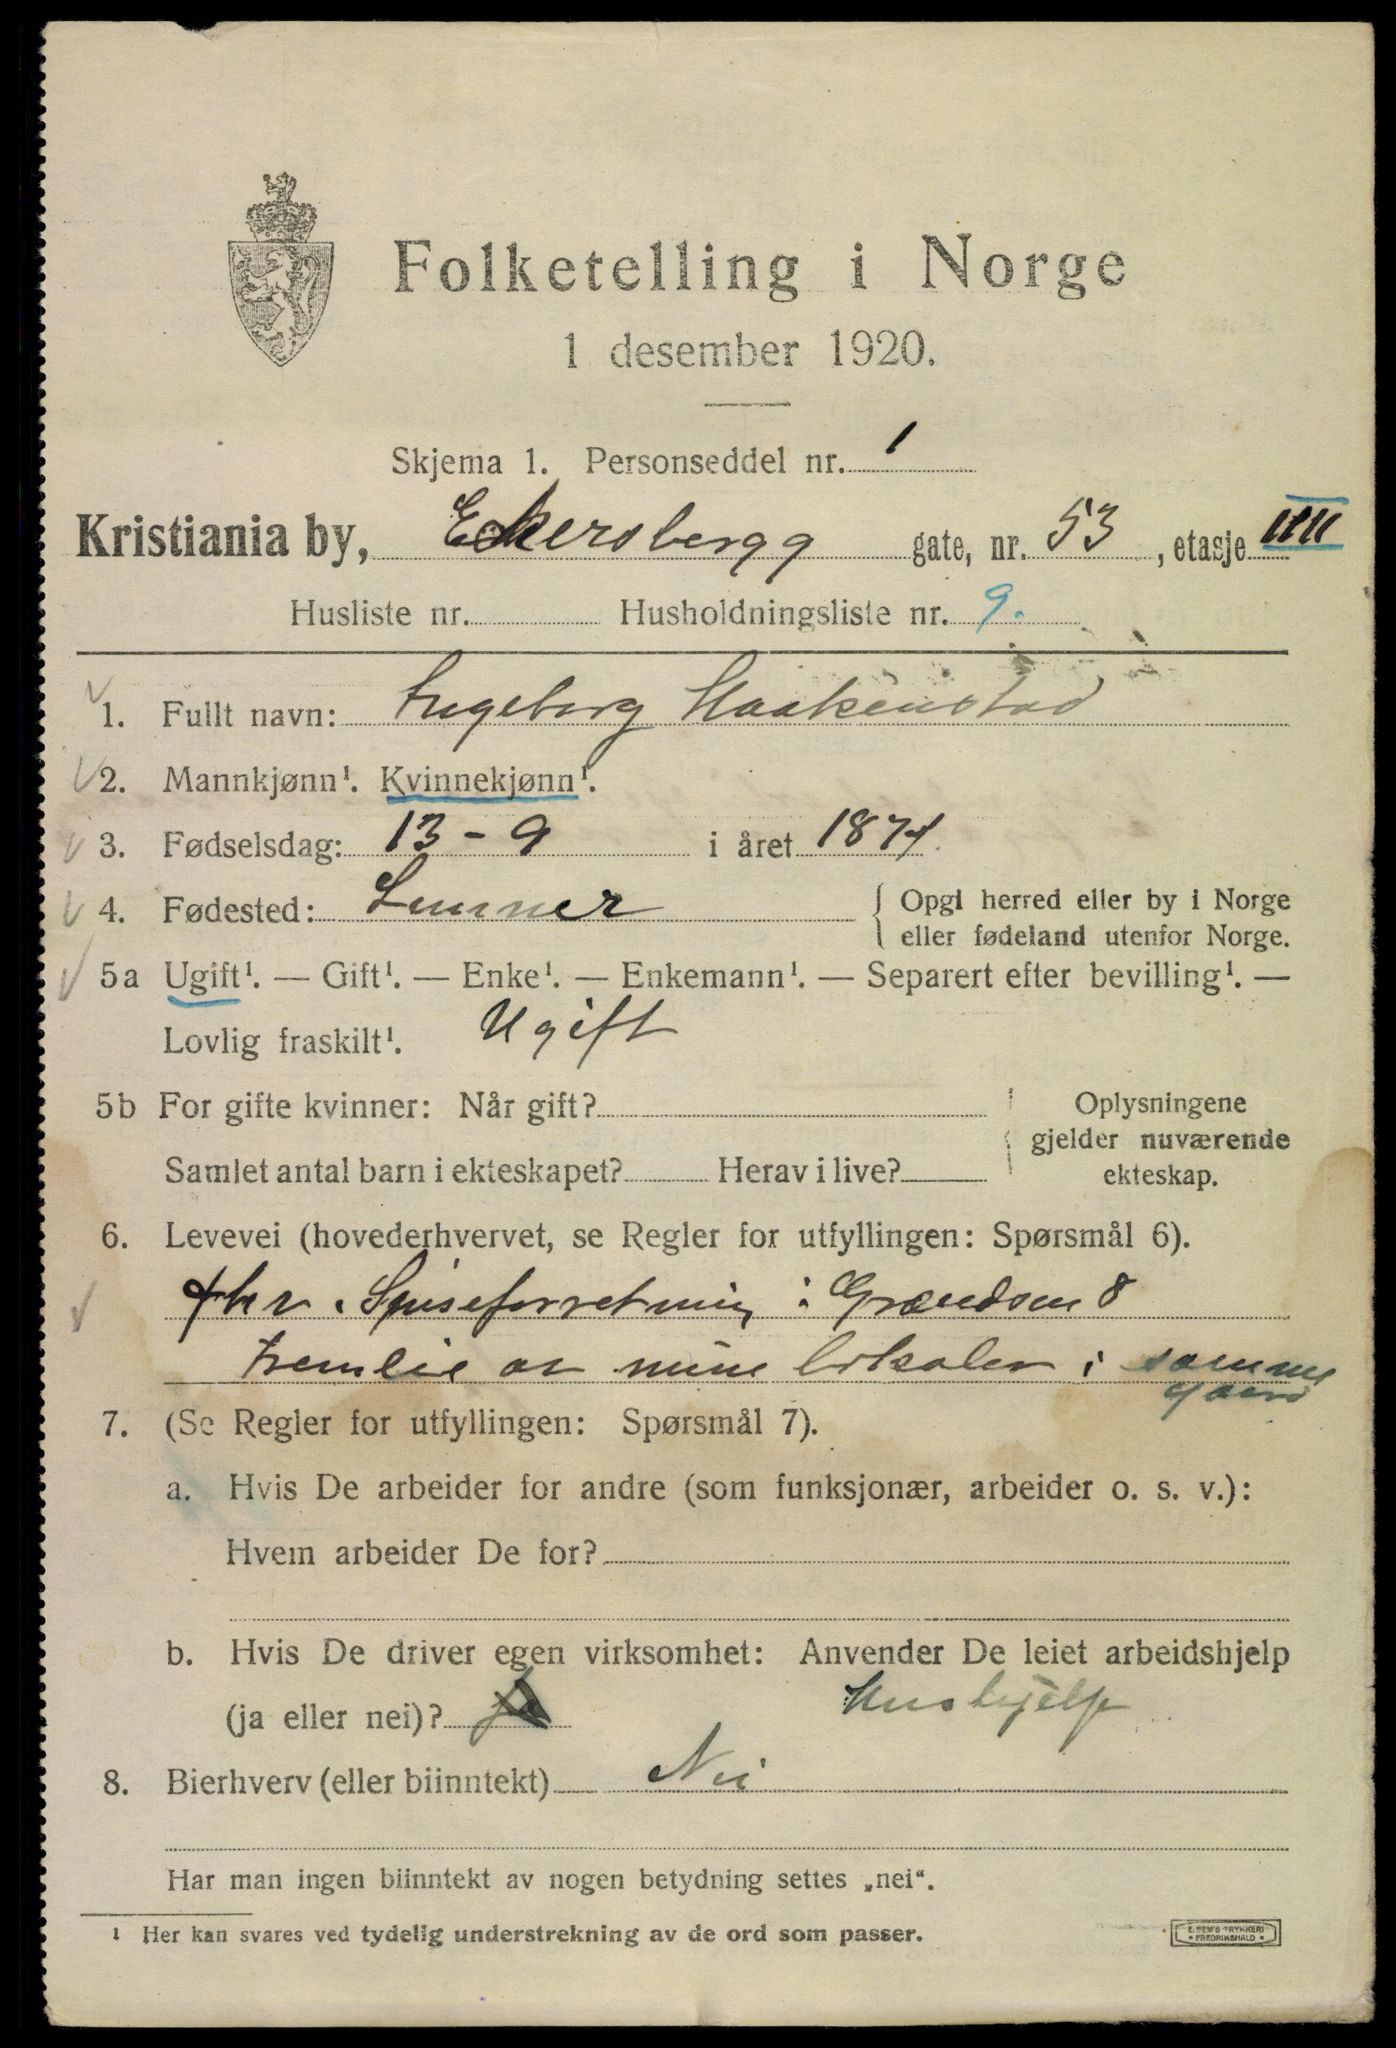 Folketelling i Norge
1 desember 1920.
Skjema 1. Personseddel nr. 1
Kristiania by, Eckersbergg gate, nr. 53, etasje IIII
Husliste nr. Husholdningsliste nr. 9.
1. Fullt navn: Ingeborg Haakenstad
2. Mannkjønn¹. Kvinnekjønn¹.
3. Fødselsdag: 13-9 i året 1874.
4. Fødested: Lunner { Opgi herred eller by i Norge
eller fødeland utenfor Norge.
5a Ugift¹. — Gift¹. — Enke¹. — Enkemann¹. — Separert efter bevilling¹. —
Lovlig fraskilt¹. Ugift
5b For gifte kvinner: Når gift? Oplysningene
gjelder nuværende
Samlet antal barn i ekteskapet? Herav i live? ekteskap.
6. Levevei (hovederhvervet, se Regler for utfyllingen: Spørsmål 6).
Spiseforretning i Grændsen 8
Fremleie av mine lokaler i samme
gaard
7. (Se Regler for utfyllingen: Spørsmål 7).
a. Hvis De arbeider for andre (som funksjonær, arbeider o. s. v.):
Hvem arbeider De for?
b. Hvis De driver egen virksomhet: Anvender De leiet arbeidshjelp
(ja eller nei)? Ja Hushjelp
8. Bierhverv (eller biinntekt) Nei
Har man ingen biinntekt av nogen betydning settes „nei“.
¹ Her kan svares ved tydelig understrekning av de ord som passer.
E. SEM'S TRYKKERI
• FREDRIKSHALD •